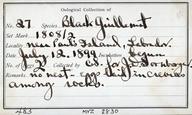 Oological Collection of
No. 27 Species Black Guillemot
Set Mark 1808/2
Locality Island, Labrador.
Date July 12, 1894 Incubation begun
No. of Eggs 2 Collected by for
Remarks no nest - eggs laid in crevice
among rocks.
483 MVZ 2830